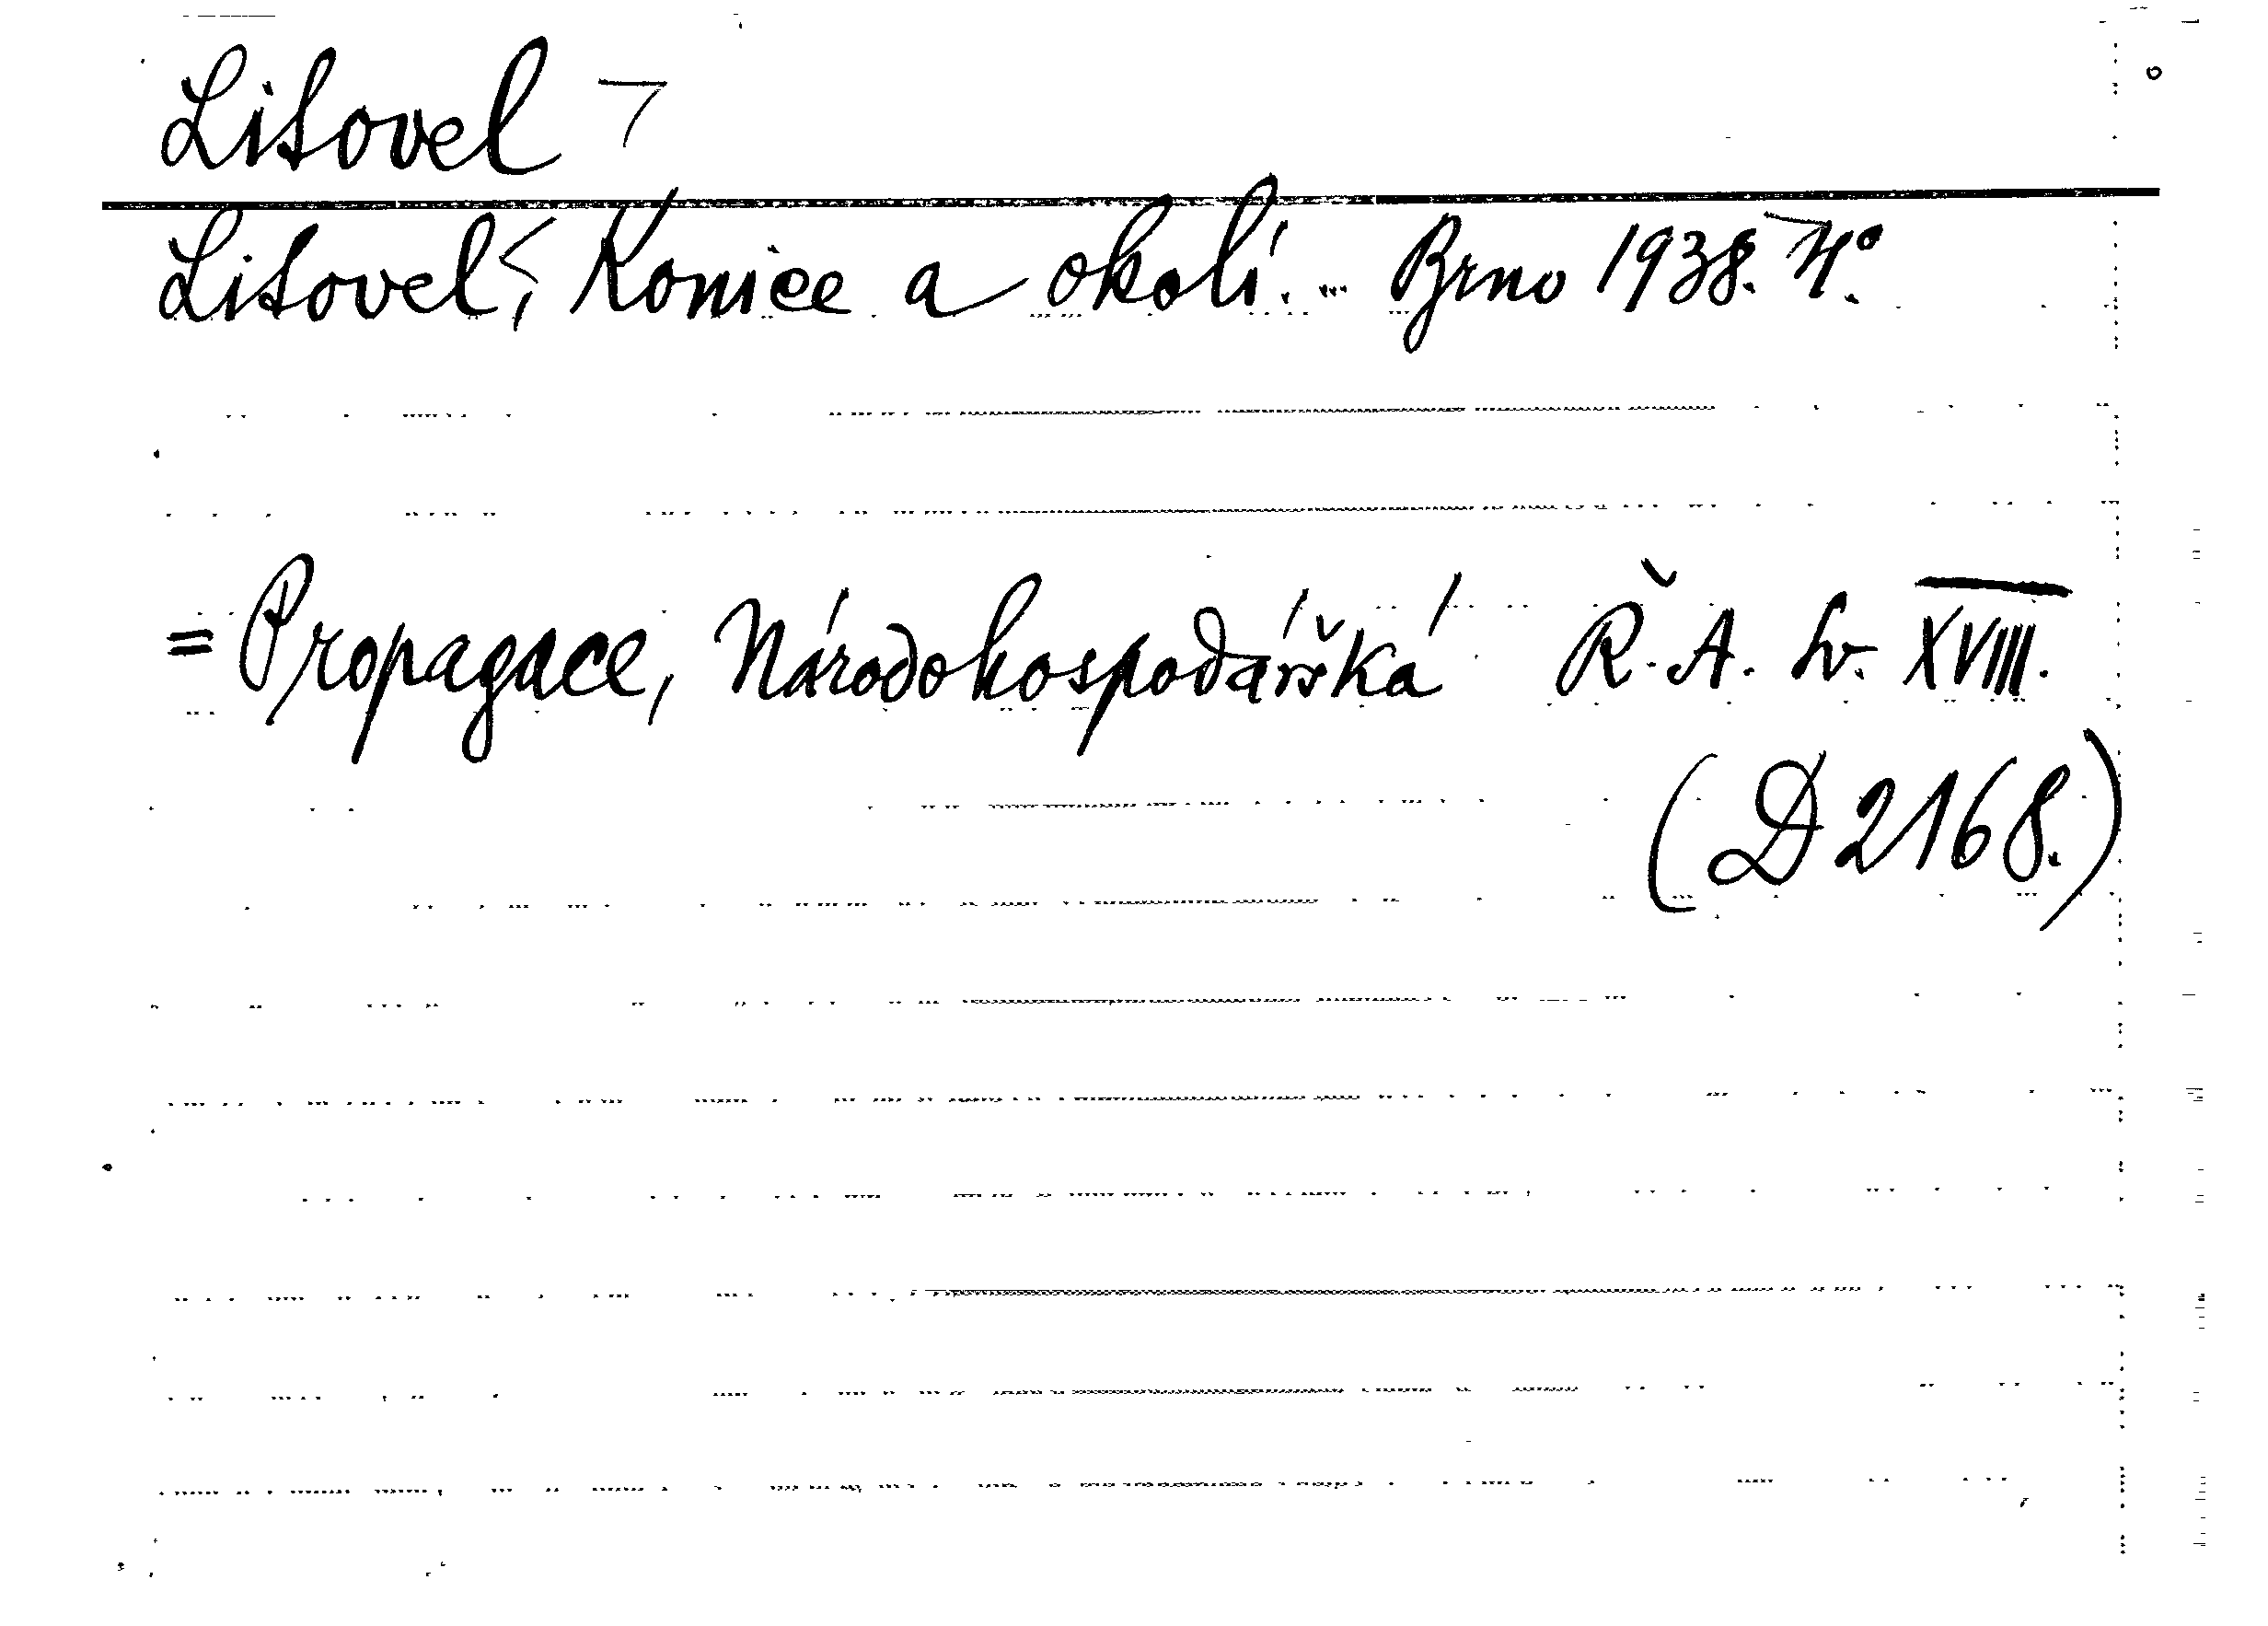 Litovel ㄱ
Litovel <, Konice a okolí. ... Brno 1938. 4°.
= Propagace, Národohospodářská Ř. A. Sv. XVIII.
(D 2168.)